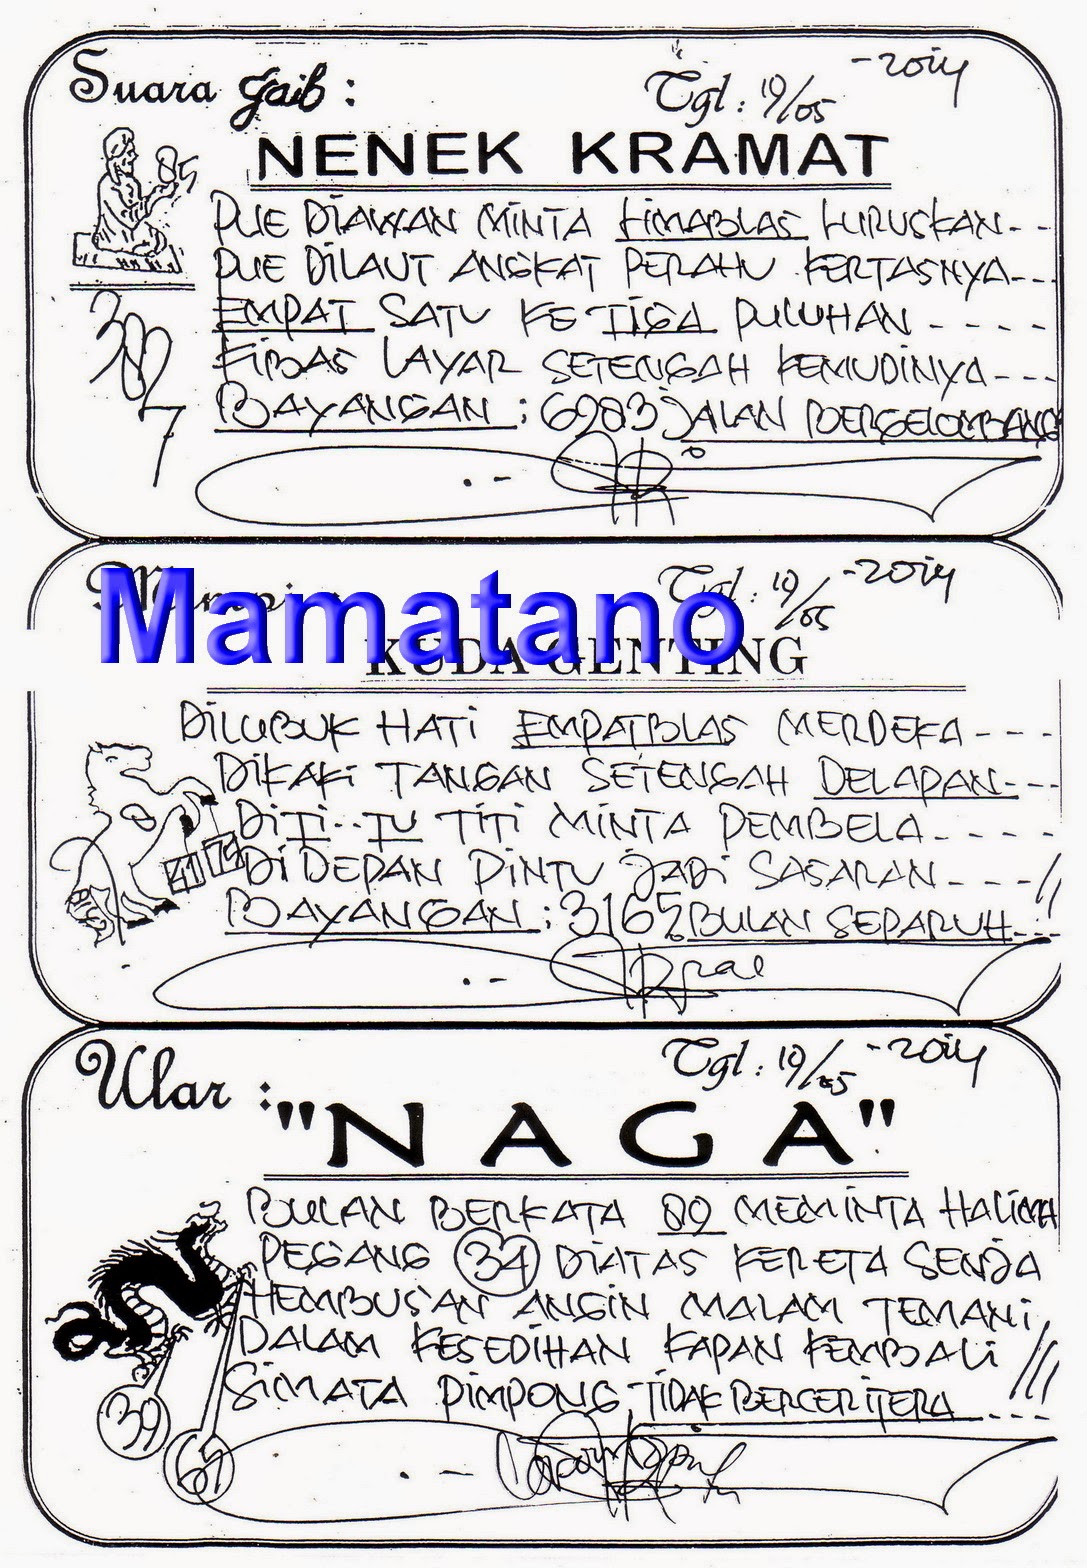 Suara Gaib :
Tgl : 19/05 -2014
NENEK KRAMAT
PUE DIAWAN MINTA LIMABLAS LURUSKAN---
PUE DILAUT ANGKAT PERAHU KERTASNYA---
EMPAT SATU KE TIGA PULUHAN ----
KIBAS LAYAR SETENGAH KEMUDINYA---
BAYANGAN : 6283 JALAN BERGELOMBANG
Mamatano
Tgl : 19/05 -2014
KUDA GENTING
DILUBUK HATI EMPATBLAS MERDEKA ----
DIKAKI TANGAN SETENGAH DELAPAN---
DITI..TU TITI MINTA PEMBELA----
DIDEPAN PINTU JADI SASARAN ----//
41 79
BAYANGAN : 3165 BULAN SEPARUH
Ular :
Tgl : 19/05 -2014
"NAGA"
BULAN BERKATA 09 MEMINTA HALIMA
PEGANG 34 DIATAS KERETA SENJA
HEMBUSAN ANGIN MALAM TEMANI
DALAM KESEDIHAN KAPAN KEMBALI
SIMATA PIMPONG TIDAK BERCERITERA ----
39
67